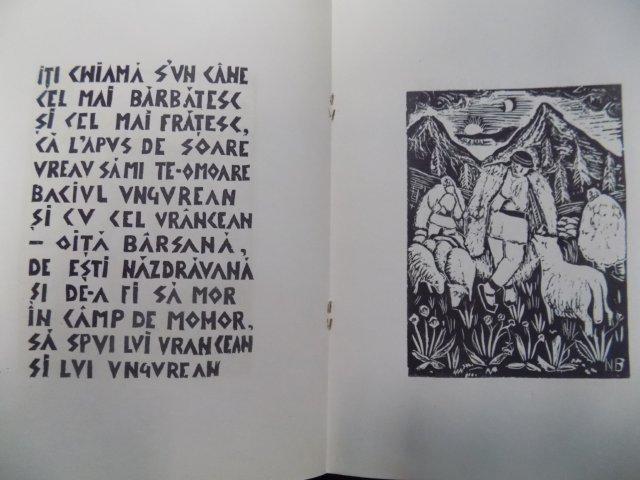 IȚI CHIAMĂ S'UN CÂNE
CEL MAI BĂRBĂTESC
ȘI CEL MAI FRĂȚESC,
CĂ L'APUS DE SOARE
VREAU SĂMI TE-OMOARE
BACIUL UNGUREAN
ȘI CU CEL VRÂNCEAN
– OIȚĂ BÂRSANĂ,
DE EȘTI NĂZDRĂVANĂ
ȘI DE-A FI SĂ MOR
ÎN CÂMP DE MOHOR,
SĂ SPUI LUI VRANCEAN
ȘI LUI UNGUREAN
NB